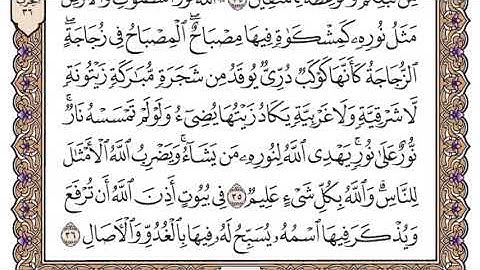 مَثَلُ نُورِهِۦ كَمِشۡكَوٰةٖ فِيهَا مِصۡبَاحٌۖ ٱلۡمِصۡبَاحُ فِي زُجَاجَةٍۖ
ٱلزُّجَاجَةُ كَأَنَّهَا كَوۡكَبٞ دُرِّيّٞ يُوقَدُ مِن شَجَرَةٖ مُّبَٰرَكَةٖ زَيۡتُونَةٖ
لَّا شَرۡقِيَّةٖ وَلَا غَرۡبِيَّةٖ يَكَادُ زَيۡتُهَا يُضِيٓءُ وَلَوۡ لَمۡ تَمۡسَسۡهُ نَارٞۚ
نُّورٌ عَلَىٰ نُورٖۚ يَهۡدِي ٱللَّهُ لِنُورِهِۦ مَن يَشَآءُۚ وَيَضۡرِبُ ٱللَّهُ ٱلۡأَمۡثَٰلَ
لِلنَّاسِۗ وَٱللَّهُ بِكُلِّ شَيۡءٍ عَلِيمٞ ٣٥ فِي بُيُوتٍ أَذِنَ ٱللَّهُ أَن تُرۡفَعَ
وَيُذۡكَرَ فِيهَا ٱسۡمُهُۥ يُسَبِّحُ لَهُۥ فِيهَا بِٱلۡغُدُوِّ وَٱلۡأٓصَالِ ٣٦